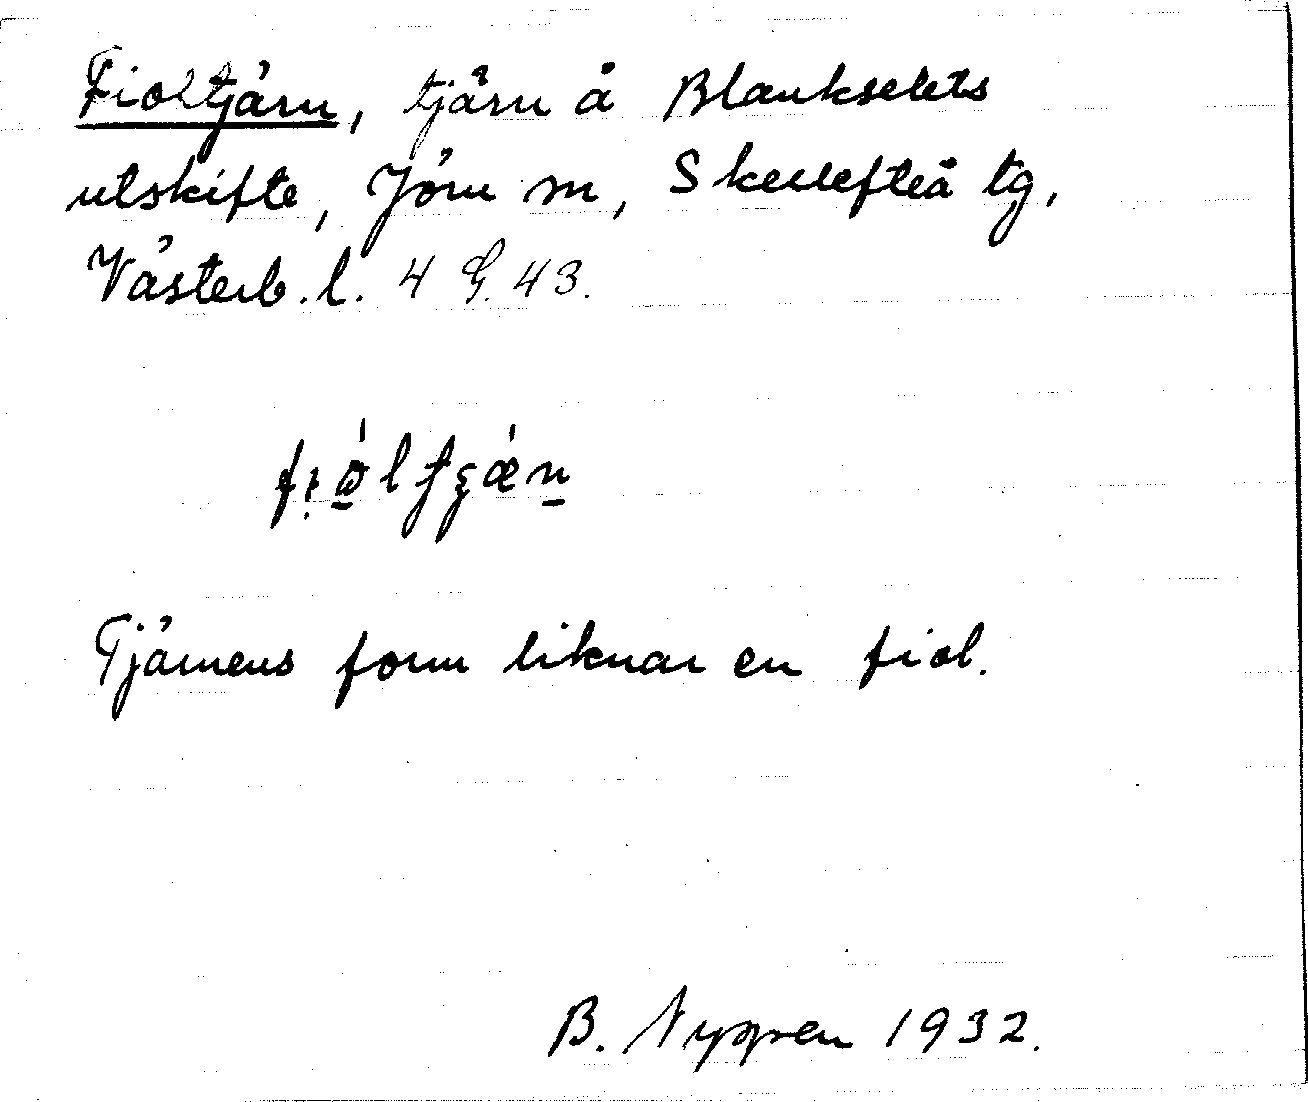 Fioltjärn, tjärn å Blankselets
utskifte, Jörn sn, Skellefteå tg,
Västerb. l. 4 G. 43.
Tjärnens form liknar en fiol.
B. Nygren 1932.